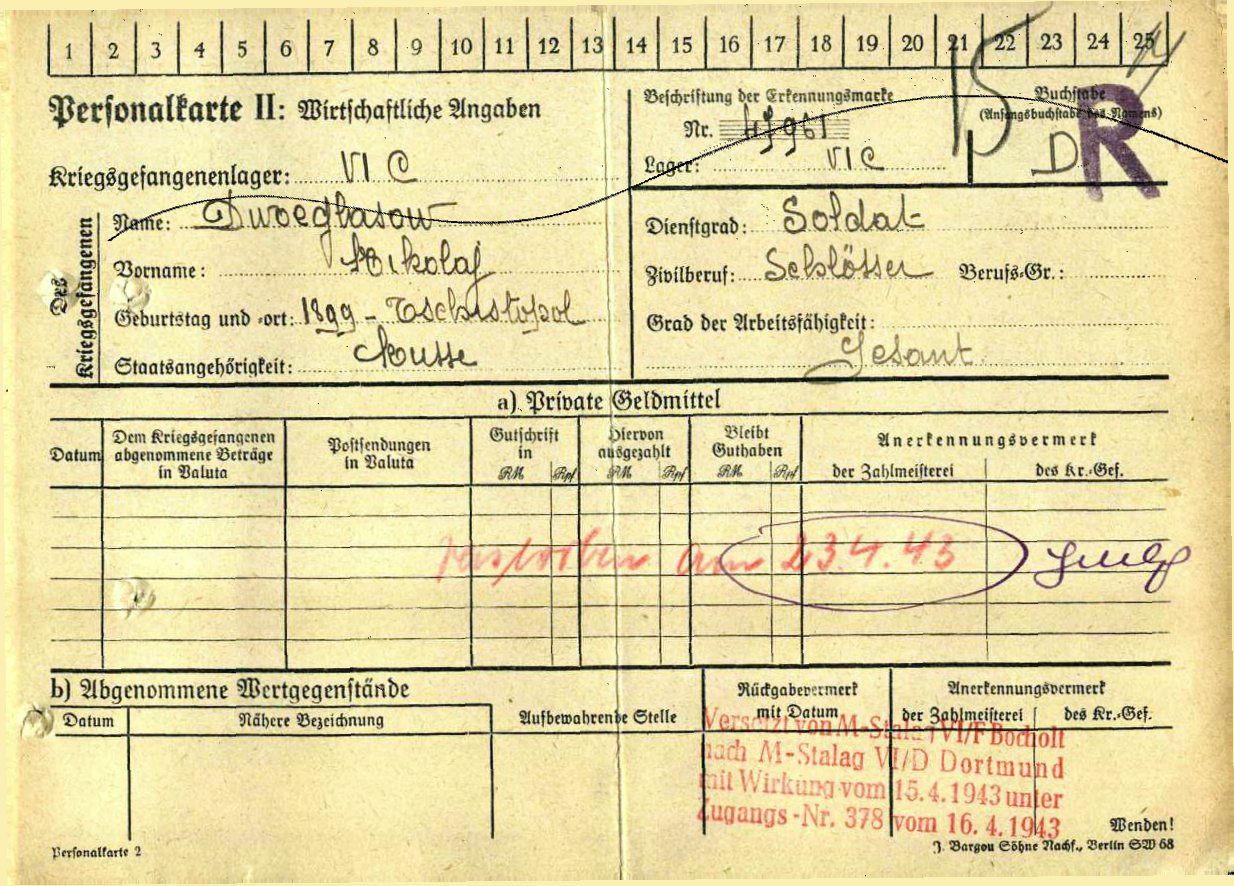 1 2 3 4 5 6 7 8 9 10 11 12 13 14 15 16 17 18 19 20 21 22 23 24 25
Personalkarte II: Wirtschaftliche Angaben
Beschriftung der Erkennungsmarke
Nr. 47961
Lager: VI C
Buchstabe
(Anfangsbuchstabe des Namens)
D R
Kriegsgefangenenlager: VI C
Des Kriegsgefangenen
Name: Dwoeglasow
Vorname: Nikolaj
Geburtstag und -ort: 1899 - Tschistopol
Staatsangehörigkeit: Russe
Dienstgrad: Soldat
Zivilberuf: Schlösser Berufs-Gr.:
Grad der Arbeitsfähigkeit:
a) Private Geldmittel
Datum
Dem Kriegsgefangenen abgenommene Beträge in Valuta
Postsendungen in Valuta
Gutschrift in RM Rpf
Hiervon ausgezahlt RM Rpf
Bleibt Guthaben RM Rpf
Anerkennungsvermerk
der Zahlmeisterei des Kr.-Gef.
verstorben am 23.4.43
b) Abgenommene Wertgegenstände
Datum Nähere Bezeichnung Aufbewahrende Stelle
Rückgabevermerk mit Datum
Anerkennungsvermerk
der Zahlmeisterei des Kr.-Gef.
Versetzt von M-Stalag VI/F Bocholt
nach M-Stalag VI/D Dortmund
mit Wirkung vom 15.4.1943 unter
Zugangs-Nr. 378 vom 16.4.1943
Wenden!
Personalkarte 2
J. Bargou Söhne Nachf., Berlin SW 68